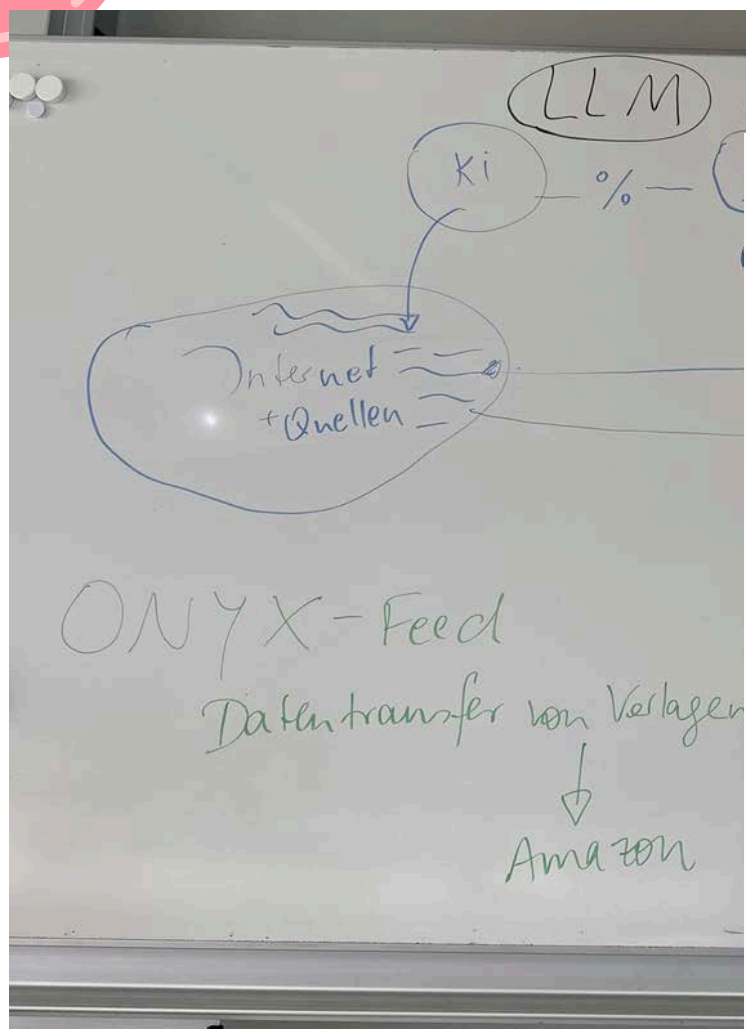 LLM
Ki — % —
Internet
+ Quellen
ONYX - Feed
Datentransfer von Verlagen
Amazon